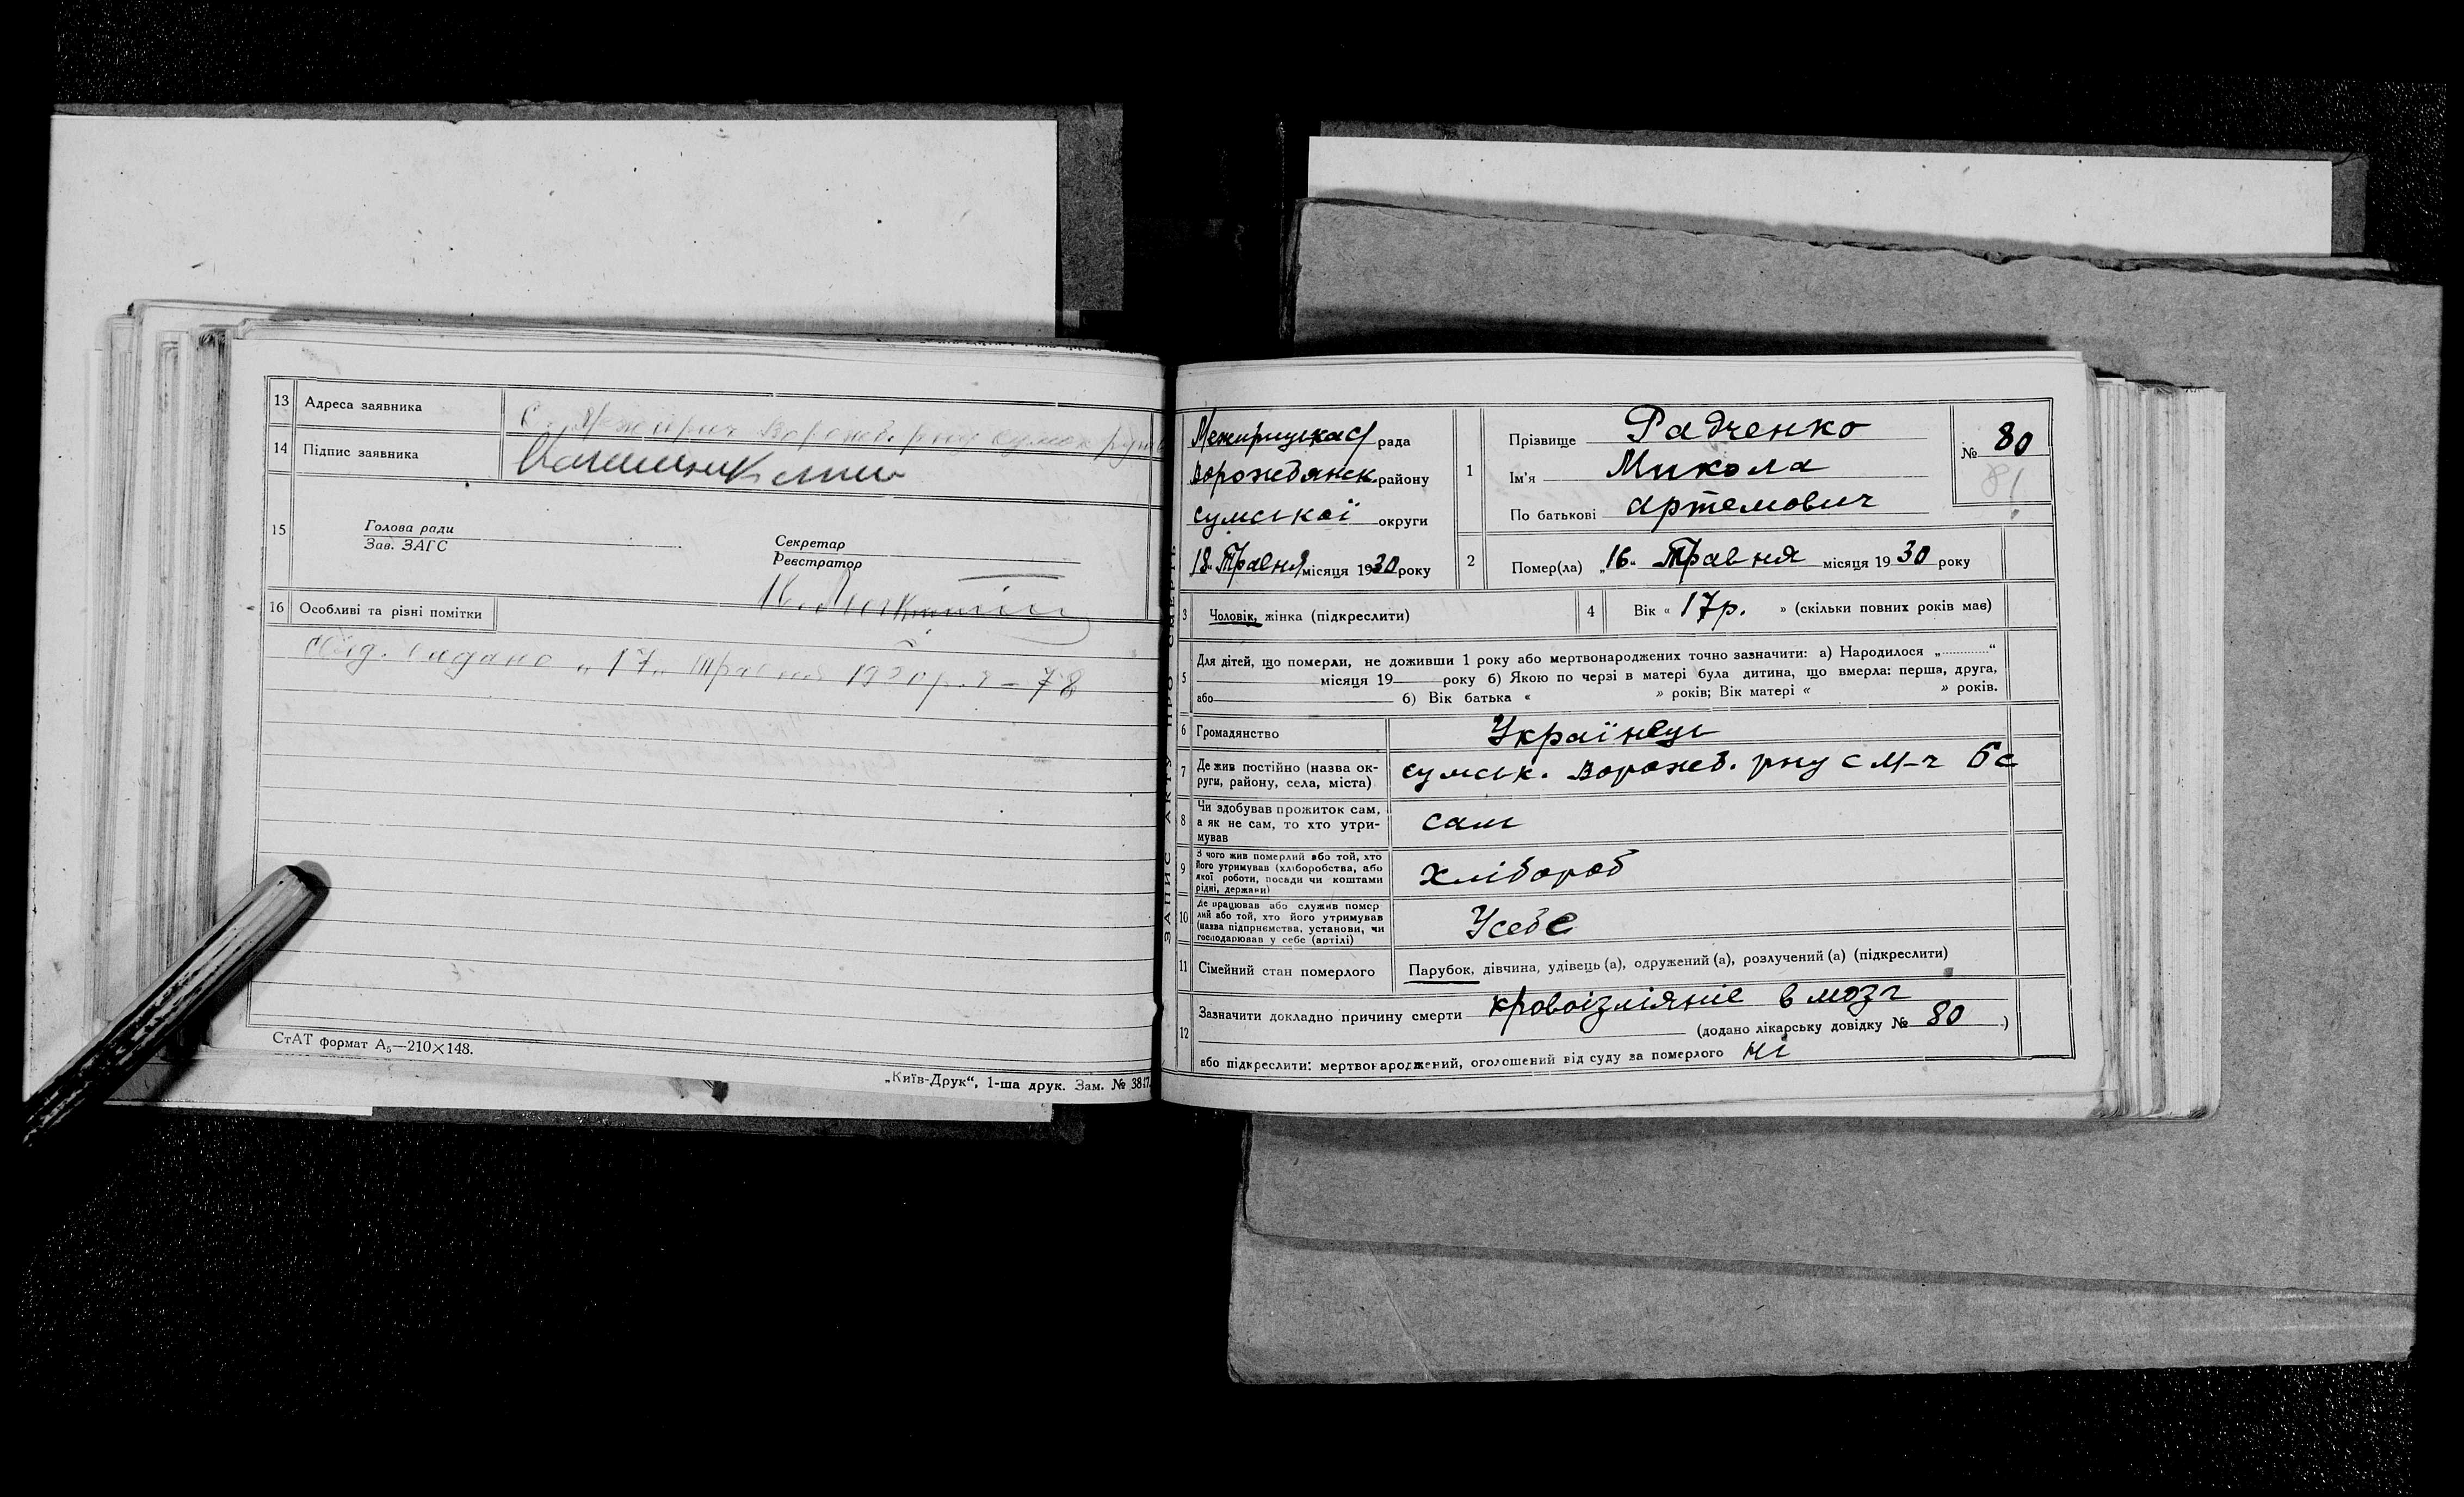 13 Адреса заявника
14 Підпис заявника
15 Голова ради
Зав. ЗАГС
Секретар
Реєстратор
16 Особливі та різні помітки
видано „17„ травня 1930 р. 78
СтАТ формат А₅—210×148.
„Київ-Друк“, 1-ша друк. Зам. №
ЗАПИС АКТУ ПРО СМЕРТЬ
рада
Ворожбянск. району
Сумської округи
18 „ Травня місяця 1930 року
1 Прізвище Радченко
Ім'я Микола
По батькові Артемович
№ 80
81
2 Помер(ла) „16„ Травня місяця 1930 року
3 Чоловік, жінка (підкреслити)
4 Вік « 17р. » (скільки повних років має)
5 Для дітей, що померли, не доживши 1 року або мертвонароджених точно зазначити: а) Народилося „ “
місяця 19 року б) Якою по черзі в матері була дитина, що вмерла: перша, друга,
або б) Вік батька « » років; Вік матері « » років.
6 Громадянство Українець
7 Де жив постійно (назва округи, району, села, міста) Сумськ. Ворожб. рну с М-ч
8 Чи здобував прожиток сам, а як не сам, то хто утримував сам
9 З чого жив померлий або той, хто його утримував (хліборобства, або якої роботи, посади чи коштами рідні, держави) Хлібороб
10 Де працював або служив померлий або той, хто його утримував (назва підприємства, установи, чи господарював у себе (артілі) Усебе
11 Сімейний стан померлого Парубок, дівчина, удівець (а), одружений (а), розлучений (а) (підкреслити)
12 Зазначити докладно причину смерти кровоізліяніє в мозг
(додано лікарську довідку № 80 )
або підкреслити: мертвонароджений, оголошений від суду за померлого ні